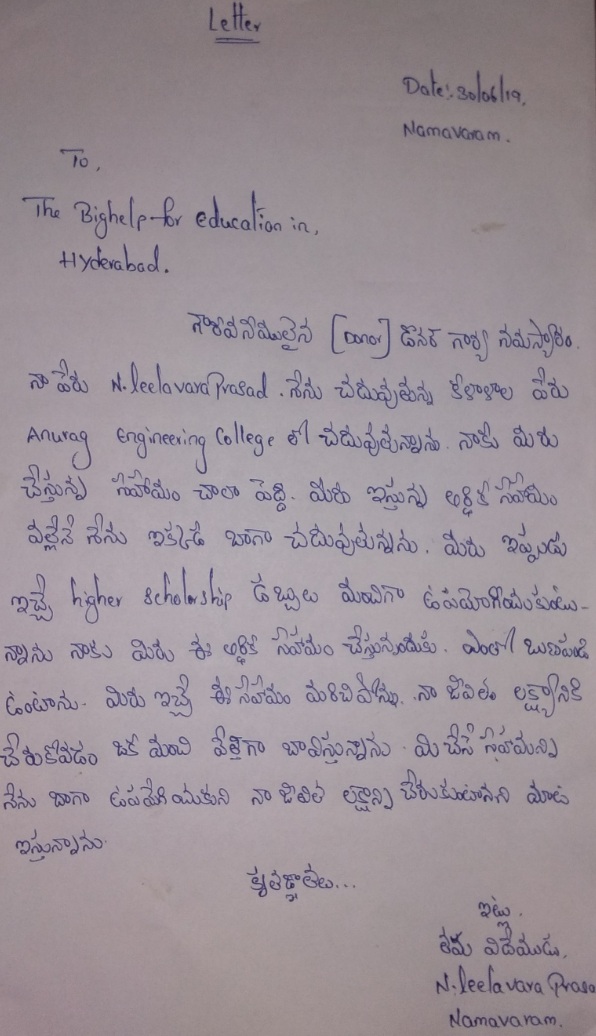 Letter
Date:- 30/06/19,
Namavaram.
To,
The Bighelp for education in,
Hyderabad.
గౌరవనీయులైన [Donor] డోనర్ గార్కి నమస్కారం.
నా పేరు N. leelavaraPrasad. నేను చదువుతున్న కళాశాల పేరు
Anurag Engineering College లో చదువుతున్నాను. నాకు మీరు
చేస్తున్న సహాయం చాలా పెద్ది. మీరు ఇస్తున్న ఆర్థిక సహాయం
వల్లేనే నేను ఇక్కడ బాగా చదువుతున్నను. మీరు ఇప్పుడు
ఇచ్చే higher scholorship డబ్బులు మంచిగా ఉపయోగించుకుంటు-
న్నాను నాకు మీరు ఈ ఆర్థిక సహాయం చేస్తున్నందుకు. ఎంతో ఋణపడి
ఉంటాను. మీరు ఇచ్చే ఈ సహాయం మరిచిపోను. నా జీవితం లక్ష్యానికి
చేరుకోవడం ఒక మంచి భావిస్తున్నాను. మీ చేసే సహాయన్ని
నేను బాగా ఉపయోగించుకుని నా జీవిత లక్ష్యాన్ని చేరుకుంటానని మాట
ఇస్తున్నాను.
కృతజ్ఞతలు...
ఇట్లు.
తమ విదేయుడు,
N. leelavara Prasa
Namavaram.